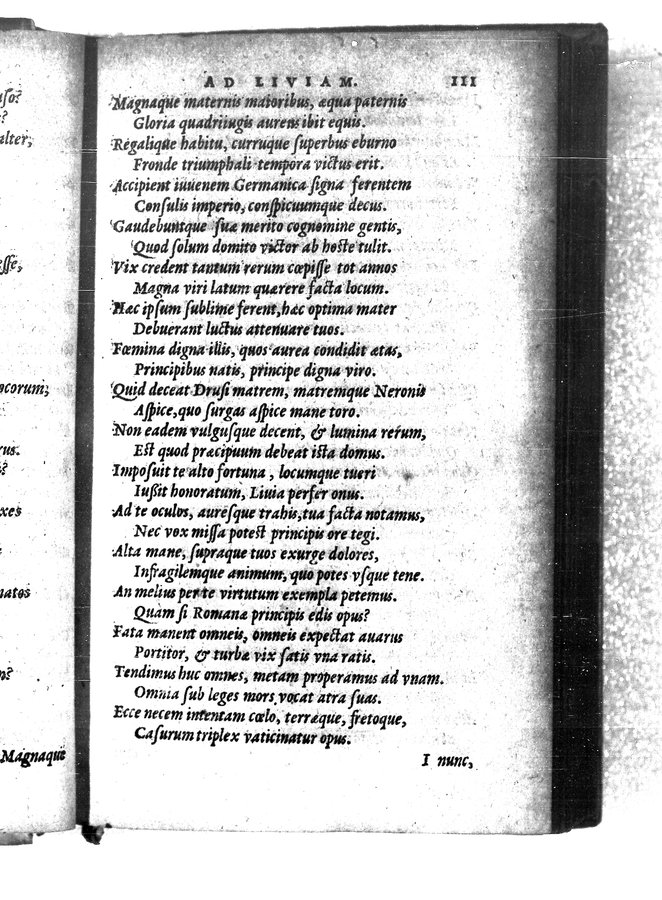 uso?
?
alter,
esse,
ocorum;
rus.
?
xes
natos
n?
Magnaque
AD LIVIAM. III
Magnaque maternis maioribus, æqua paternis
Gloria quadriiugis aureus ibit equis.
Regalique habitu, curruque superbus eburno
Fronde triumphali tempora victus erit.
Accipient iuuenem Germanica signa ferentem
Consulis imperio, conspicuumque decus.
Gaudebuntque suæ merito cognomine gentis,
Quod solum domito victor ab hoste tulit.
Vix credent tantum rerum cœpisse tot annos
Magna viri latum quærere facta locum.
Hæc ipsum sublime ferent, hæc optima mater
Debuerant luctus attenuare tuos.
Fœmina digna illis, quos aurea condidit ætas,
Principibus natis, principe digna viro.
Quid deceat Drusi matrem, matremque Neronis
Aspice, quo surgas aspice mane toro.
Non eadem vulgusque decent, & lumina rerum,
Est quod præcipuum debeat ista domus.
Imposuit te alto fortuna, locumque tueri
Iussit honoratum, Liuia perfer onus.
Ad te oculos, auresque trahis, tua facta notamus,
Nec vox missa potest principis ore tegi.
Alta mane, supraque tuos exurge dolores,
Infragilemque animum, quo potes vsque tene.
An melius per te virtutum exempla petemus.
Quàm si Romanæ principis edis opus?
Fata manent omneis, omneis expectat auarus
Portitor, & turbæ vix satis vna ratis.
Tendimus huc omnes, metam properamus ad vnam.
Omnia sub leges mors vocat atra suas.
Ecce necem intentam cœlo, terræque, fretoque,
Casurum triplex vaticinatur opus.
I nunc,